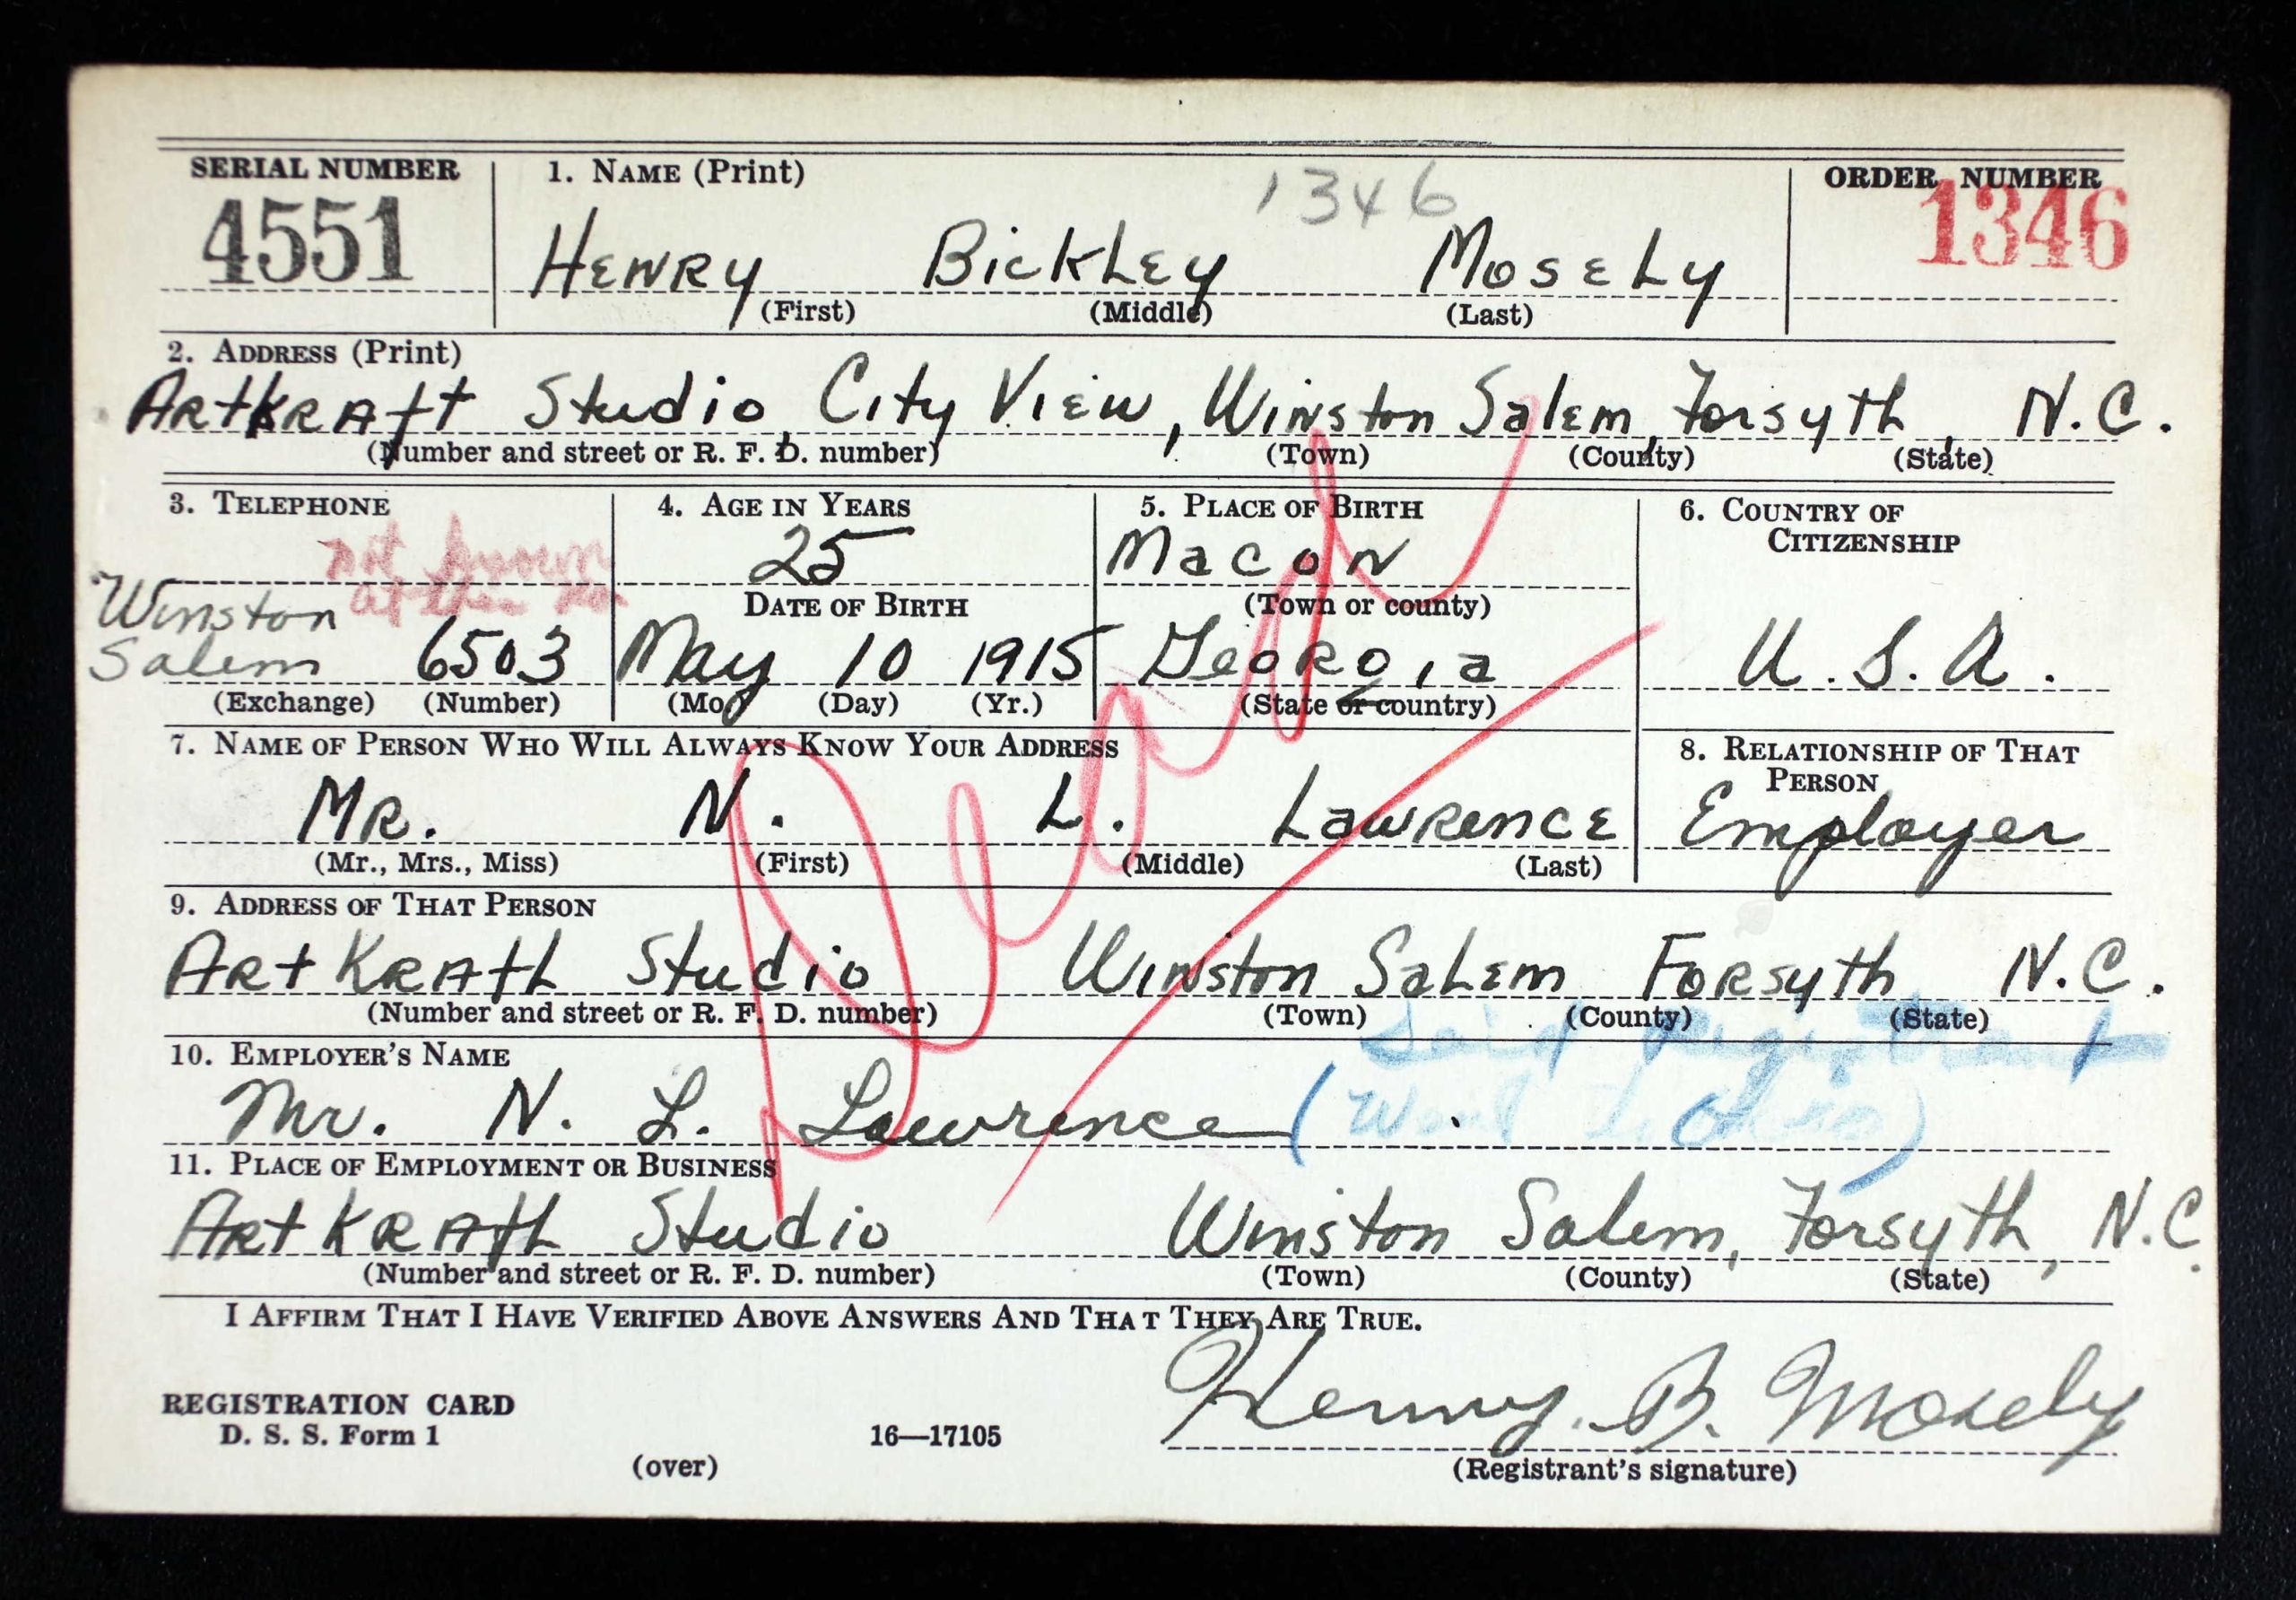 SERIAL NUMBER 1. NAME (Print) ORDER NUMBER
4551 1346 1346
HENRY BickLEy MosELy
(First) (Middle) (Last)
2. ADDRESS (Print)
ARtkRAft Studio, City ViEw, Winston SalEm, Forsyth, N.C.
(Number and street or R. F. D. number) (Town) (County) (State)
3. TELEPHONE 4. AGE IN YEARS 5. PLACE OF BIRTH 6. COUNTRY OF CITIZENSHIP
not known 25 Macon
at this no. DATE OF BIRTH (Town or county)
Winston Salem 6503 May 10 1915 Georgia U.S.A.
(Exchange) (Number) (Mo.) (Day) (Yr.) (State or country)
7. NAME OF PERSON WHO WILL ALWAYS KNOW YOUR ADDRESS 8. RELATIONSHIP OF THAT PERSON
MR. N. L. LawRence Employer
(Mr., Mrs., Miss) (First) (Middle) (Last)
Dead
9. ADDRESS OF THAT PERSON
ARt KRAft Studio Winston SaLEm FoRsyth N.C.
(Number and street or R. F. D. number) (Town) (County) (State)
Said Registrant
10. EMPLOYER'S NAME
Mr. N. L. Lawrence (Went to )
11. PLACE OF EMPLOYMENT OR BUSINESS
ARt KRAft Studio Winston Salem, Forsyth, N.C.
(Number and street or R. F. D. number) (Town) (County) (State)
I AFFIRM THAT I HAVE VERIFIED ABOVE ANSWERS AND THAT THEY ARE TRUE.
REGISTRATION CARD Henry B. Mosely
D. S. S. Form 1 16—17105
(over) (Registrant's signature)